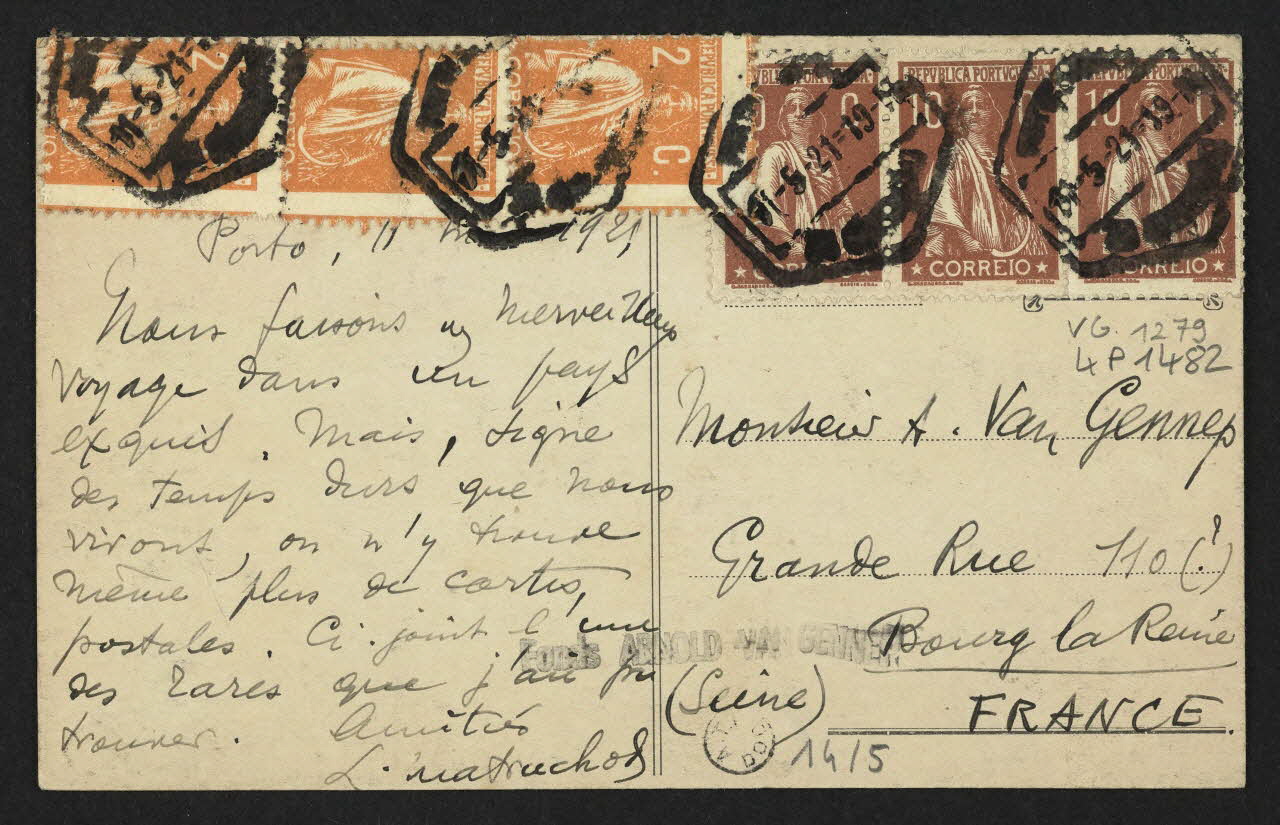 11-5-21-
2
2 C.
REPVBLICA PORTVGVESA
10 C
CORREIO
11-5-21-19-
CORREIO
11-5-21-19-
10 C
CORREIO
Porto, 11 1921
Nous faisons un merveilleux
voyage dans un pays
exquis. Mais, signe
des temps durs que nous
vivons, on n'y trouve
même plus de cartes
postales. Ci-joint l'une
des rares que j'aie pu
trouver. Amitiés
L. Matruchot
VG. 1279
4P1482
Monsieur A. Van Gennep
Grande Rue 110 (?)
Bourg la Reine
(Seine)
FRANCE
Fonds ARNOLD VAN GENNEP
14/5